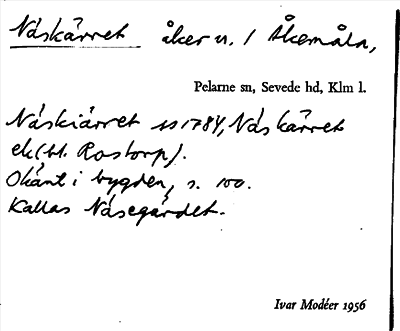 Näskärret åker u. / Åkemåla,
Pelarne sn, Sevede hd, Klm l.
Näskiärret ss 1784, Näskärret
ek (bl. Rostorp).
Okänt i bygden, s. 100.
Kallas Näsegärdet.
Ivar Modéer 1956